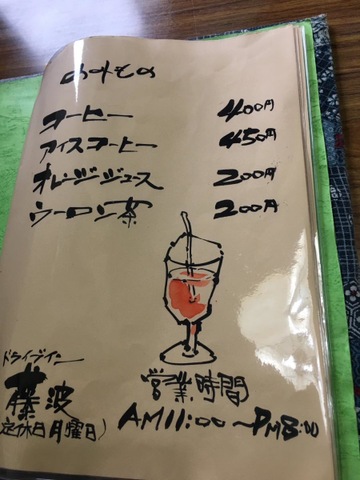 のみもの
コーヒー 400円
アイスコーヒー 450円
オレンジジュース 200円
ウーロン茶 200円
ドライブイン
藤波
定休日月曜日)
営業時間
AM11:00~PM8:00